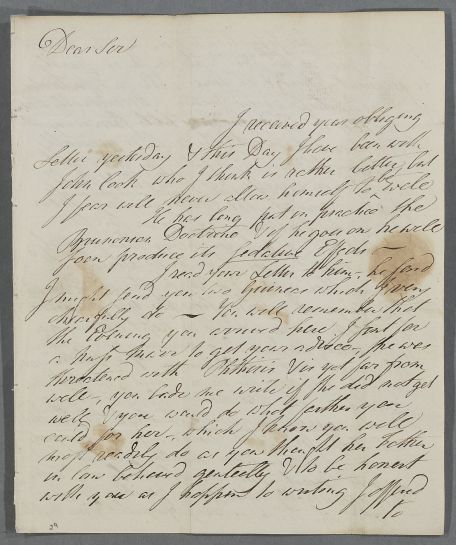 Dear Sir
I received your obliging
Letter yesterday & this Day I have been with
John Cook who I think is rather better, but
I fear will never allow himself to be well
He has long put in practice the
Brunonian Doctrine & if he goes on he will
soon produce its Sedative Effects —
I read your Letter to him, he said
I might send you two Guineas which I very
chearfully do — You will remember that
the Evening you arrived here I sent for
a to get your advice, he was
threatened with Phthisis & is yet far from
well, you bade me write if he did not get
well & you would do what farther you
could for her, which I know you will
most readily do as you thought her
in law behaved genteelly & to be honest
with you as I happen to writing I offered
to
29